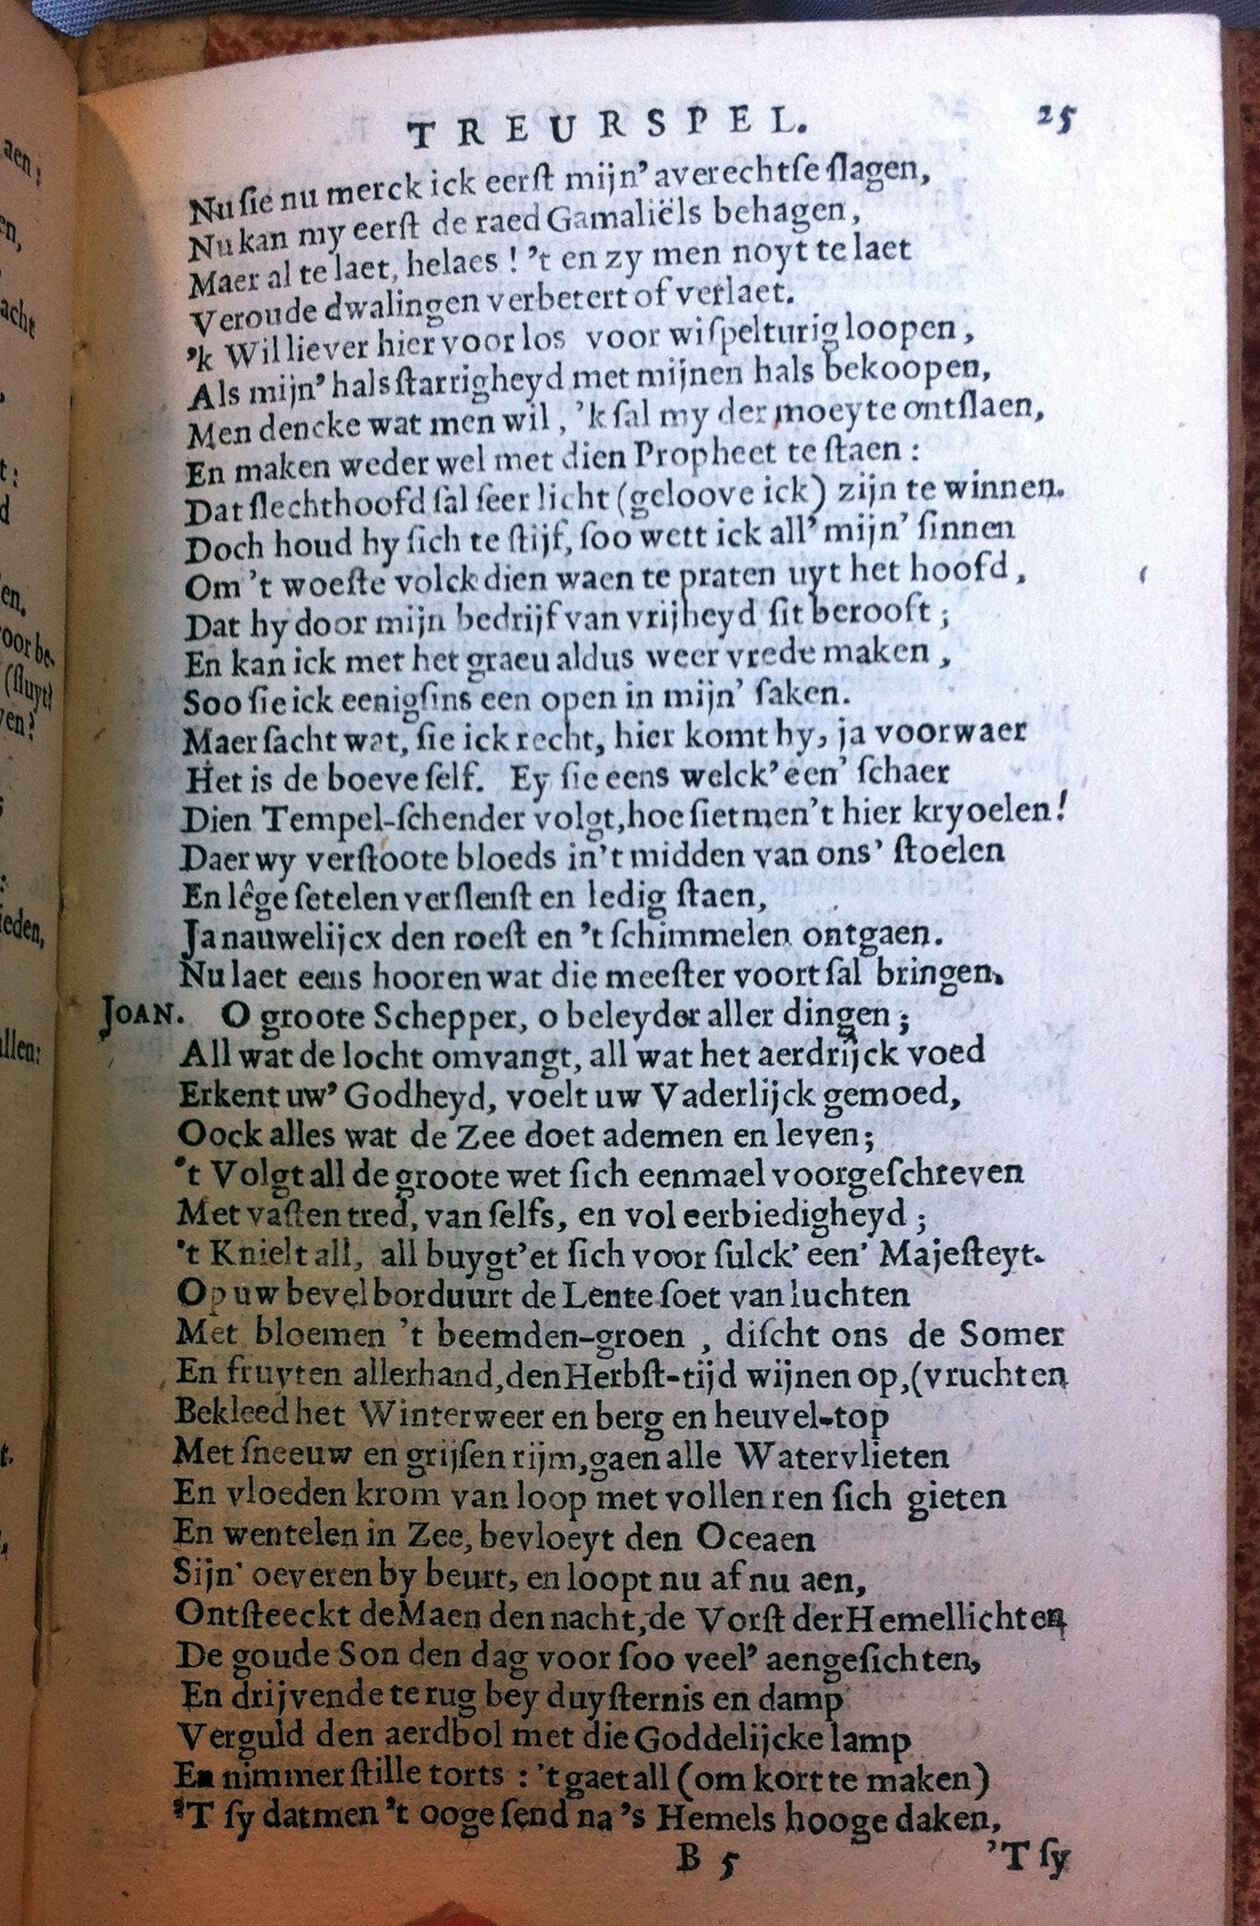 TREURSPEL. 25
Nu ſie nu merck ick eerſt mijn' averechtſe ſlagen,
Nu kan my eerſt de raed Gamaliëls behagen,
Maer al te laet, helaes! 't en zy men noyt te laet
Veroude dwalingen verbetert of verlaet.
'k Wil liever hier voor los voor wiſpelturig loopen,
Als mijn' halsſtarrigheyd met mijnen hals bekoopen,
Men dencke wat men wil, 'k ſal my der moeyte ontſlaen,
En maken weder wel met dien Propheet te ſtaen:
Dat ſlechthoofd ſal ſeer licht (geloove ick) zijn te winnen.
Doch houd hy ſich te ſtijf, ſoo wett ick all' mijn' ſinnen
Om 't woeſte volck dien waen te praten uyt het hoofd,
Dat hy door mijn bedrijf van vrijheyd ſit berooft;
En kan ick met het graeu aldus weer vrede maken,
Soo ſie ick eenigſins een open in mijn' ſaken.
Maer ſacht wat, ſie ick recht, hier komt hy, ja voorwaer
Het is de boeve ſelf. Ey ſie eens welck' een' ſchaer
Dien Tempel-ſchender volgt, hoe ſietmen't hier kryoelen!
Daer wy verſtoote bloeds in't midden van ons' ſtoelen
En lêge ſetelen verſlenſt en ledig ſtaen,
Ja nauwelijcx den roeſt en 't ſchimmelen ontgaen.
Nu laet eens hooren wat die meeſter voort ſal bringen.
JOAN. O groote Schepper, o beleyder aller dingen;
All wat de locht omvangt, all wat het aerdrijck voed
Erkent uw' Godheyd, voelt uw Vaderlijck gemoed,
Oock alles wat de Zee doet ademen en leven;
't Volgt all de groote wet ſich eenmael voorgeſchreven
Met vaſten tred, van ſelfs, en vol eerbiedigheyd;
't Knielt all, all buygt'et ſich voor ſulck' een' Majeſteyt.
Op uw bevel borduurt de Lente ſoet van luchten
Met bloemen 't beemden-groen, diſcht ons de Somer
En fruyten allerhand, den Herbſt-tijd wijnen op, (vruchten
Bekleed het Winterweer en berg en heuvel-top
Met ſneeuw en grijſen rijm, gaen alle Watervlieten
En vloeden krom van loop met vollen ren ſich gieten
En wentelen in Zee, bevloeyt den Oceaen
Sijn' oeveren by beurt, en loopt nu af nu aen,
Ontſteeckt de Maen den nacht, de Vorſt der Hemellichten
De goude Son den dag voor ſoo veel' aengeſichten,
En drijvende terug bey duyſternis en damp
Verguld den aerdbol met die Goddelijcke lamp
En nimmer ſtille torts: 't gaet all (om kort te maken)
'T ſy datmen 't ooge ſend na 's Hemels hooge daken,
B 5 'T ſy